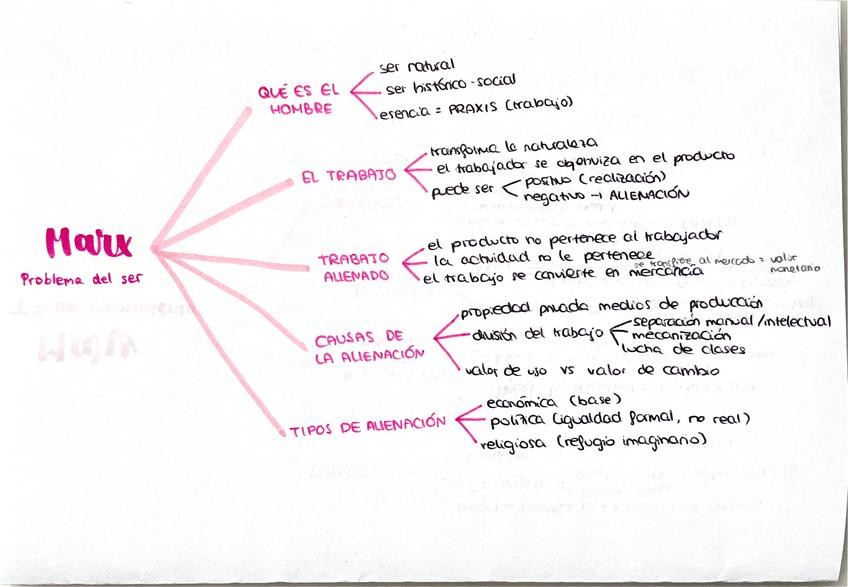 Marx
Problema del ser
QUÉ ES EL
HOMBRE
ser natural
ser histórico-social
esencia = PRAXIS (trabajo)
EL TRABAJO
transforma la naturaleza
el trabajador se objetiviza en el producto
puede ser
positivo (realización)
negativo → ALIENACIÓN
TRABAJO
ALIENADO
el producto no pertenece al trabajador
la actividad no le pertenece
el trabajo se convierte en mercancía
se transfiere al mercado = valor
monetario
CAUSAS DE
LA ALIENACIÓN
propiedad privada medios de producción
división del trabajo
separación manual/intelectual
mecanización
lucha de clases
valor de uso vs valor de cambio
TIPOS DE ALIENACIÓN
económica (base)
política (igualdad formal, no real)
religiosa (refugio imaginario)